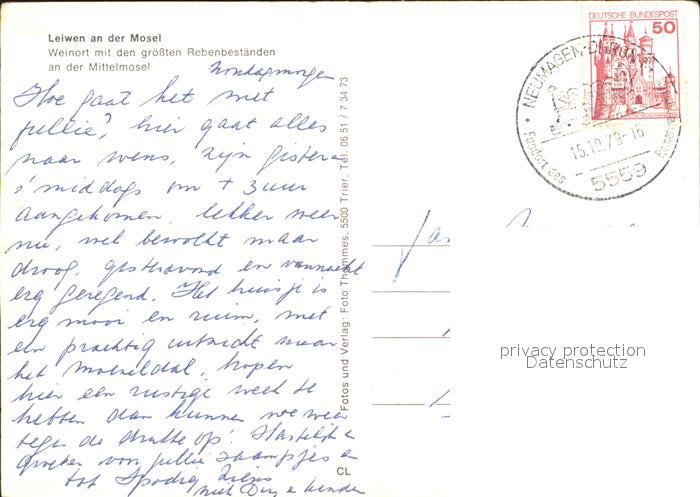 Leiwen an der Mosel
Weinort mit den größten Rebenbeständen
an der Mittelmosel
Mondagmorgen
Hoe gaat het met
jullie?, hier gaat alles
naar wens, zijn gisteren
's middags om + 3 uur
aangekomen, lekker weer
nu, wel bewolkt maar
droog, gisteravond en vannacht
erg geregend. Het huisje is
erg mooi en ruim, met
een prachtig uitzicht naar
het moezeldal, hopen
hier een rustige week te
hebben dan kunnen we weer
tegen de drukte op! Hartelijke
groeten van jullie
tot spodig ziens
kinderen
Fotos und Verlag: Foto Thommes, 5500 Trier, Tel. 06 51 / 7 34 73
CL
DEUTSCHE BUNDESPOST
50
NEUMAGEN-DHRON
15.10.79-16
5559
Fundort des
privacy protection
Datenschutz